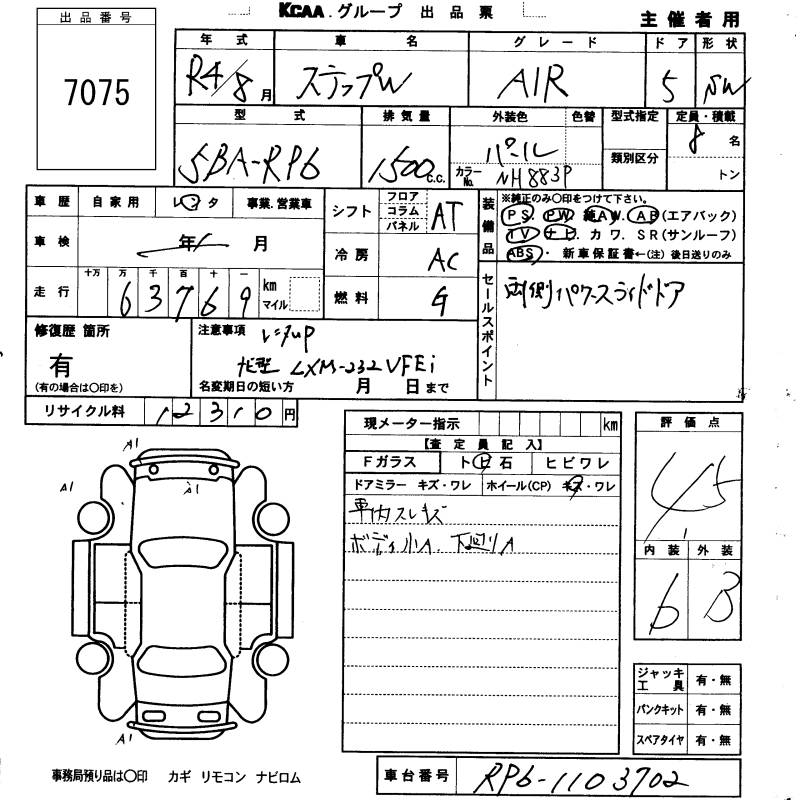 KCAA.グループ 出品票
主催者用
出品番号
7075
年式 車名 グレード ドア 形状
R4/8月 ステップW AIR 5 SW
型式 排気量 外装色 色替 型式指定 定員・積載
5BA-RP6 1500c.c. パール 8名
カラーNo. NH883P 類別区分 トン
車歴 自家用 レンタ 事業.営業車
車検 年 月
走行 十万 万 千 百 十 一
63769 km マイル
シフト フロア コラム パネル AT
冷房 AC
燃料 G
装備品
※純正のみ〇印をつけて下さい。
PS. PW. 純AW. AB(エアバック)
TV ナビ. カワ. SR(サンルーフ)
ABS・ 新車保証書←(注) 後日送りのみ
セールスポイント
両側パワースライドドア
修復歴 箇所
有
(有の場合は〇印を)
注意事項 レンタup
ナビ型 LXM-232VFEi
名変期日の短い方 月 日まで
リサイクル料 12310円
現メーター指示 km
【査定員記入】
Fガラス トビ石 ヒビワレ
ドアミラー キズ・ワレ ホイール(CP) キズ・ワレ
車内スレキズ
ボディ小A. 下廻りA
評価点
4.5
内装 外装
b B
A1
A1
A1
A1
ジャッキ工具 有・無
パンクキット 有・無
スペアタイヤ 有・無
事務局預り品は〇印 カギ リモコン ナビロム
車台番号 RP6-1103702